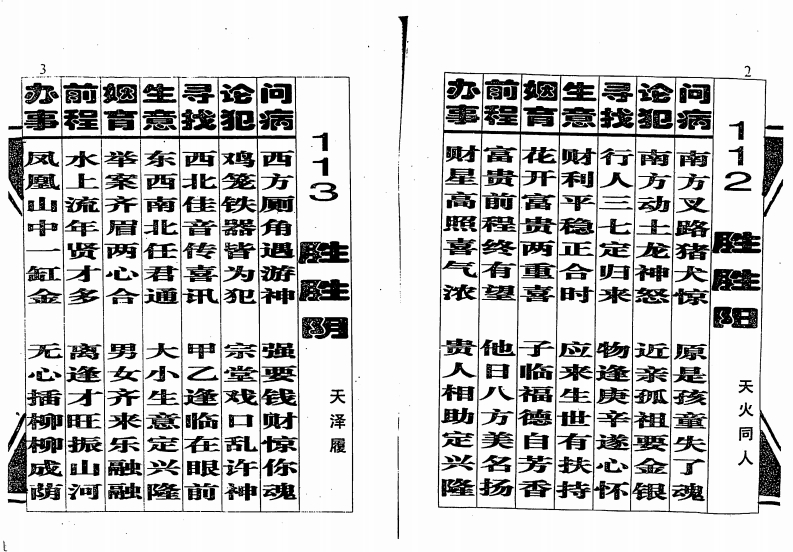 2
112 胜胜阳 天火同人
问病 南方叉路猪犬惊 原是孩童失了魂
论犯 南方动土龙神怒 近亲孤祖要金银
寻找 行人三七定归来 物逢庚辛遂心怀
生意 财利平稳正合时 应来生世有扶持
姻育 花开富贵两重喜 子临福德自芳香
前程 富贵前程终有望 他日八方美名扬
办事 财星高照喜气浓 贵人相助定兴隆
3
113 胜胜阴 天泽履
问病 西方厕角遇游神 强要钱财惊你魂
论犯 鸡笼铁器皆为犯 宗堂戏口乱许神
寻找 西北佳音传喜讯 甲乙逢临在眼前
生意 东西南北任君通 大小生意定兴隆
姻育 举案齐眉两心合 男女齐来乐融融
前程 水上流年贤才多 离逢才旺振山河
办事 凤凰山中一缸金 无心插柳柳成荫